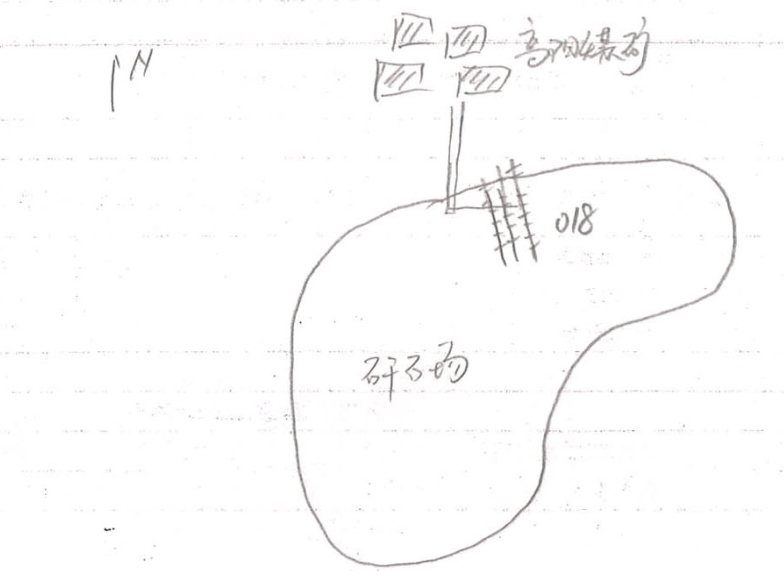 N
高洞煤矿
018
矸石场